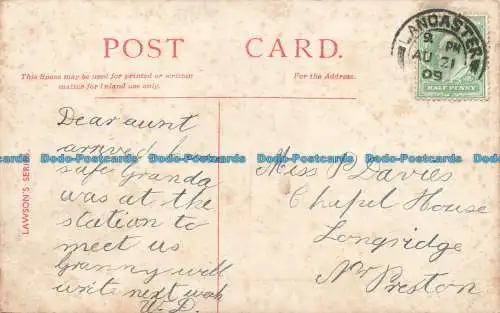 POST CARD.
This Space may be used for printed or written
matter for Inland use only.
For the Address.
LANCASTER
9 PM
AU 21
09
HALF PENNY
LAWSON'S SERIES.
Dear aunt
arrived
safe Granda
was at the
station to
meet us
Granny will
write next week
W. D.
Miss P Davies
Chapel House
Longridge
Nr Preston
Dodo-Postcards Dodo-Postcards Dodo-Postcards Dodo-Postcards